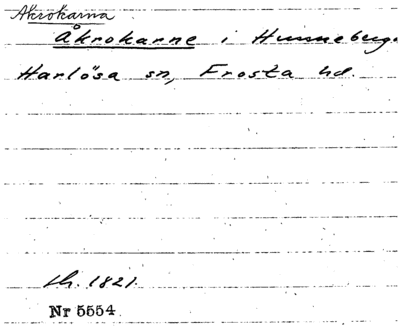 Åkrokarna
Åkrokarne i Hunneberga
Harlösa sn, Frosta hd.
lh. 1821.
Nr 5554